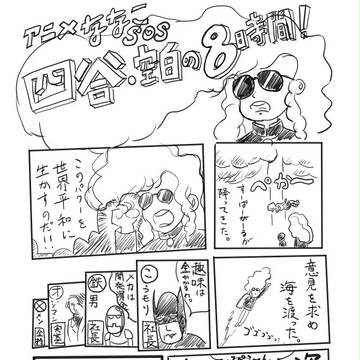 アニメななこSOS
四谷・空白の8時間!
ペカー
すーぱーがーるが
降ってきた。
このパワーを
世界平和に
生かすのだ!!
意見を求め
海を渡った。
ゴゴゴゴゴ
趣味は
金がかるわ。
こうもり
社長
メカは
鉄男
社長